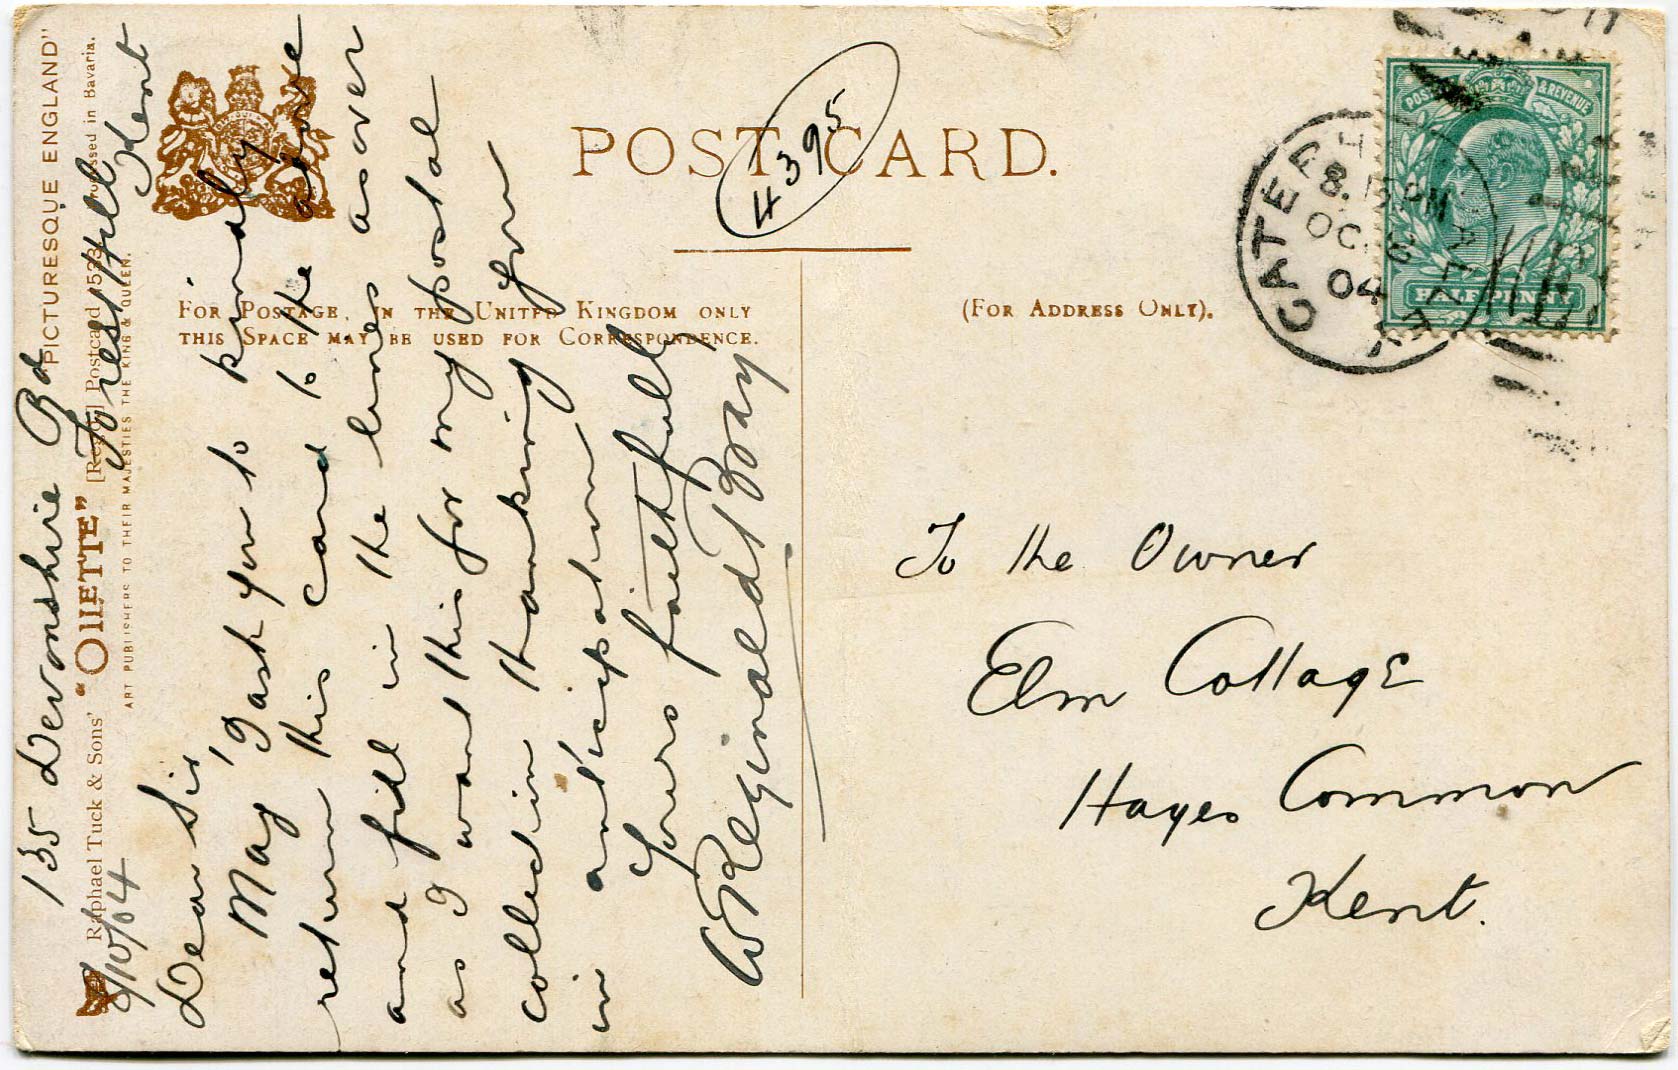 POST CARD.
4395
FOR POSTAGE, IN THE UNITED KINGDOM ONLY
THIS SPACE MAY BE USED FOR CORRESPONDENCE.
(FOR ADDRESS ONLY).
POSTAGE & REVENUE
HALFPENNY
CATERHAM VALLEY
8.15 PM
OC 8
04
"PICTURESQUE ENGLAND"
Raphael Tuck & Sons' "OILETTE" [Regd.] Postcard
Processed in Bavaria.
ART PUBLISHERS TO THEIR MAJESTIES THE KING & QUEEN.
135 Devonshire Rd
Forest Hill
Kent
8/10/04
Dear Sir,
May I ask you to kindly
return this card to the above
and fill in the lines as over
as I want this for my postal
collection thanking you
in anticipation
Yours faithfully
W Reginald Bray
To the Owner
Elm Cottage
Hayes Common
Kent.